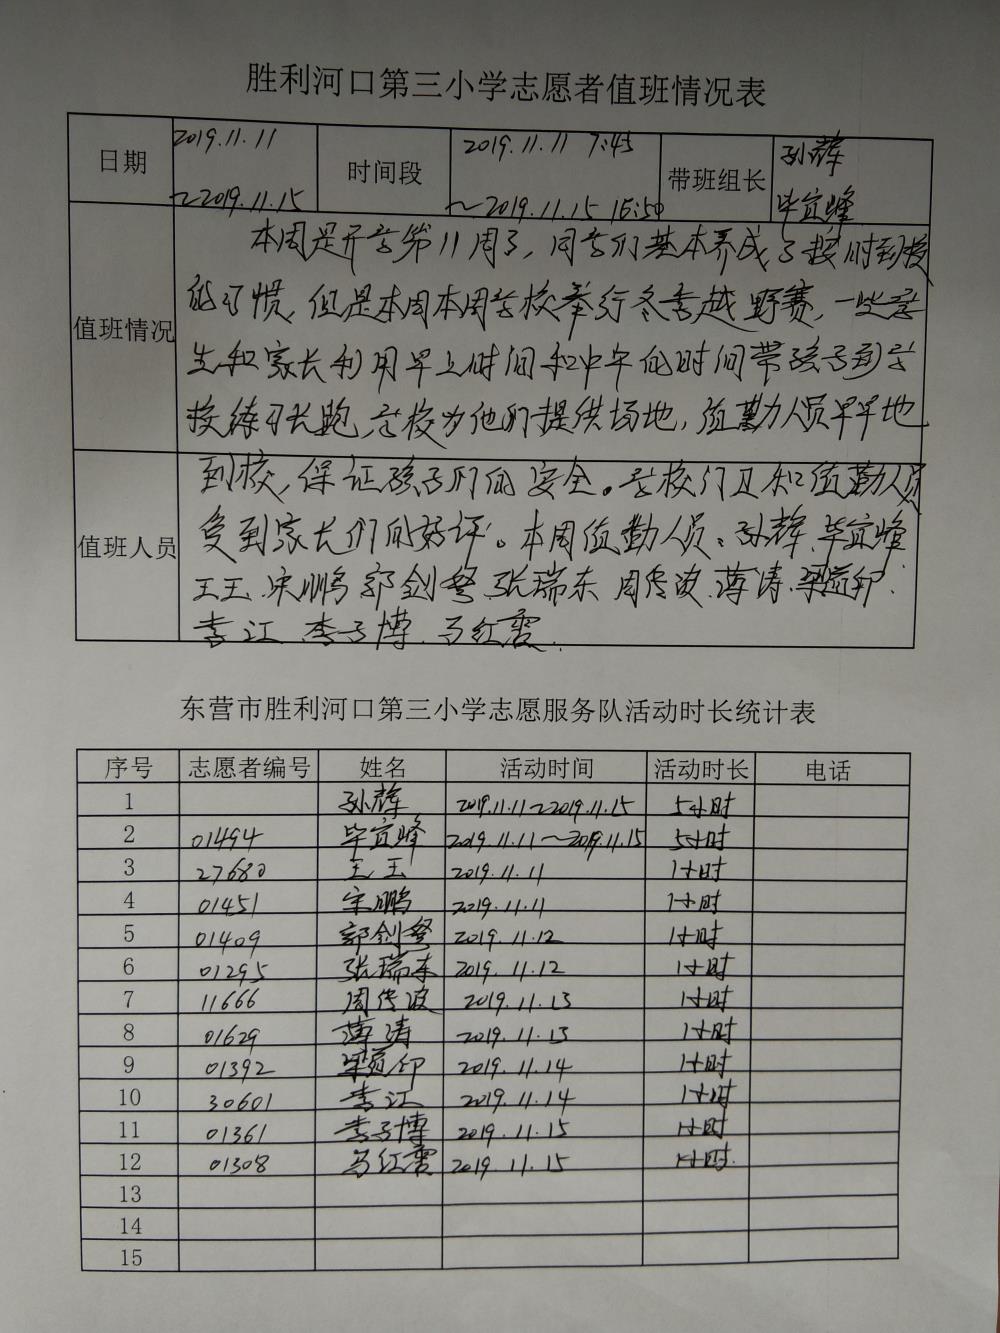 胜利河口第三小学志愿者值班情况表
日期 2019.11.11 ～2019.11.15 时间段 2019.11.11 7:45 ～2019.11.15 16:50 带班组长 孙辉 毕宜峰
值班情况
本周是开学第11周了，同学们基本养成了按时到校
的习惯，但是本周本周学校举行冬季越野赛，一些学
生和家长利用早上时间和中午的时间带孩子到学
校练习长跑，学校为他们提供场地，值勤人员早早地
值班人员
到校，保证孩子们的安全。学校门卫和值勤人员
受到家长们的好评。本周值勤人员：孙辉、毕宜峰
王玉、宋鹏、郭剑、张瑞东、周传波、薄涛、梁、
李江、李子博、马红霞.
东营市胜利河口第三小学志愿服务队活动时长统计表
序号 志愿者编号 姓名 活动时间 活动时长 电话
1 孙辉 2019.11.11～2019.11.15 5小时
2 01494 毕宜峰 2019.11.11～2019.11.15 5小时
3 27680 王玉 2019.11.11 1小时
4 01451 宋鹏 2019.11.11 1小时
5 01409 郭剑 2019.11.12 1小时
6 01295 张瑞东 2019.11.12 1小时
7 11666 周传波 2019.11.13 1小时
8 01629 薄涛 2019.11.13 1小时
9 01392 梁 2019.11.14 1小时
10 30601 李江 2019.11.14 1小时
11 01361 李子博 2019.11.15 1小时
12 01308 马红霞 2019.11.15 1小时.
13
14
15